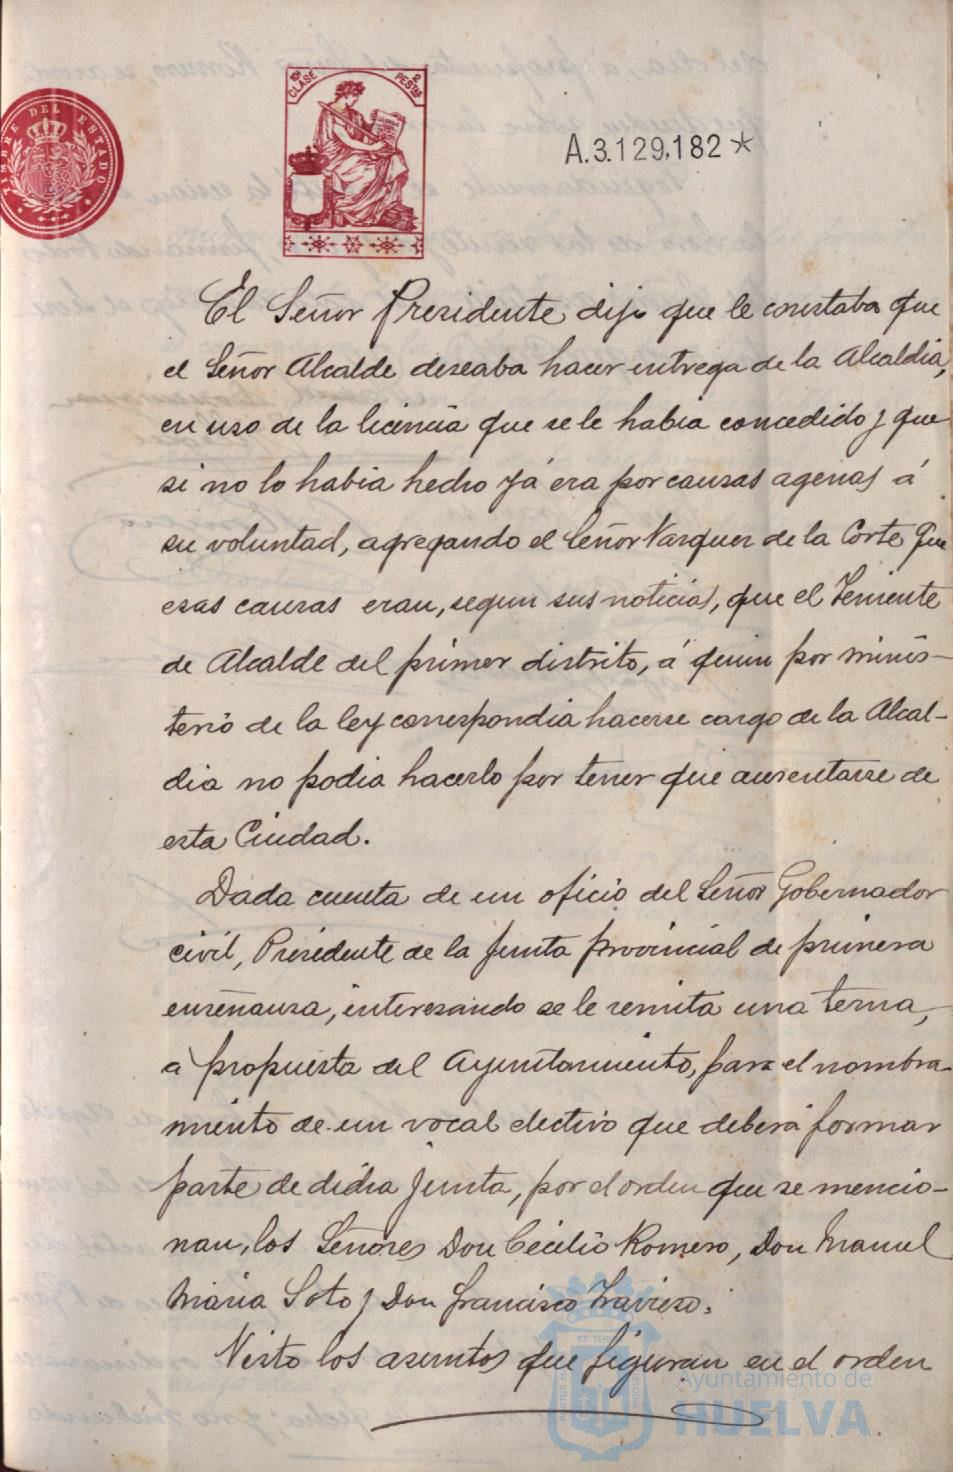 TIMBRE DEL ESTADO
10ª CLASE
2 PESTAS
A.3.129,182*
El Señor Presidente dijo que le constaba que
el Señor Alcalde deseaba hacer entrega de la Alcaldia,
en uso de la licencia que se le habia concedido y que
si no lo habia hecho yá era por causas agenas á
su voluntad, agregando el Señor Vazquez de la Corte que
esas causas eran, segun sus noticias, que el Teniente
de Alcalde del primer distrito, á quien por minis-
terio de la ley correspondia hacerse cargo de la Alcal-
dia no podia hacerlo por tener que ausentarse de
esta Ciudad.
Dada cuenta de un oficio del Señor Gobernador
civil, Presidente de la Junta provincial de primera
enseñanza, interesando se le remita una terna,
á propuesta del Ayuntamiento, para el nombra-
miento de un vocal electivo que deberá formar
parte de dicha Junta, por el orden que se mencio-
nan, los Señores Don Cecilio Romero, Don Manuel
Maria Soto y Don Francisco Traviero.
Visto los asuntos que figuran en el orden
Ayuntamiento de
HUELVA